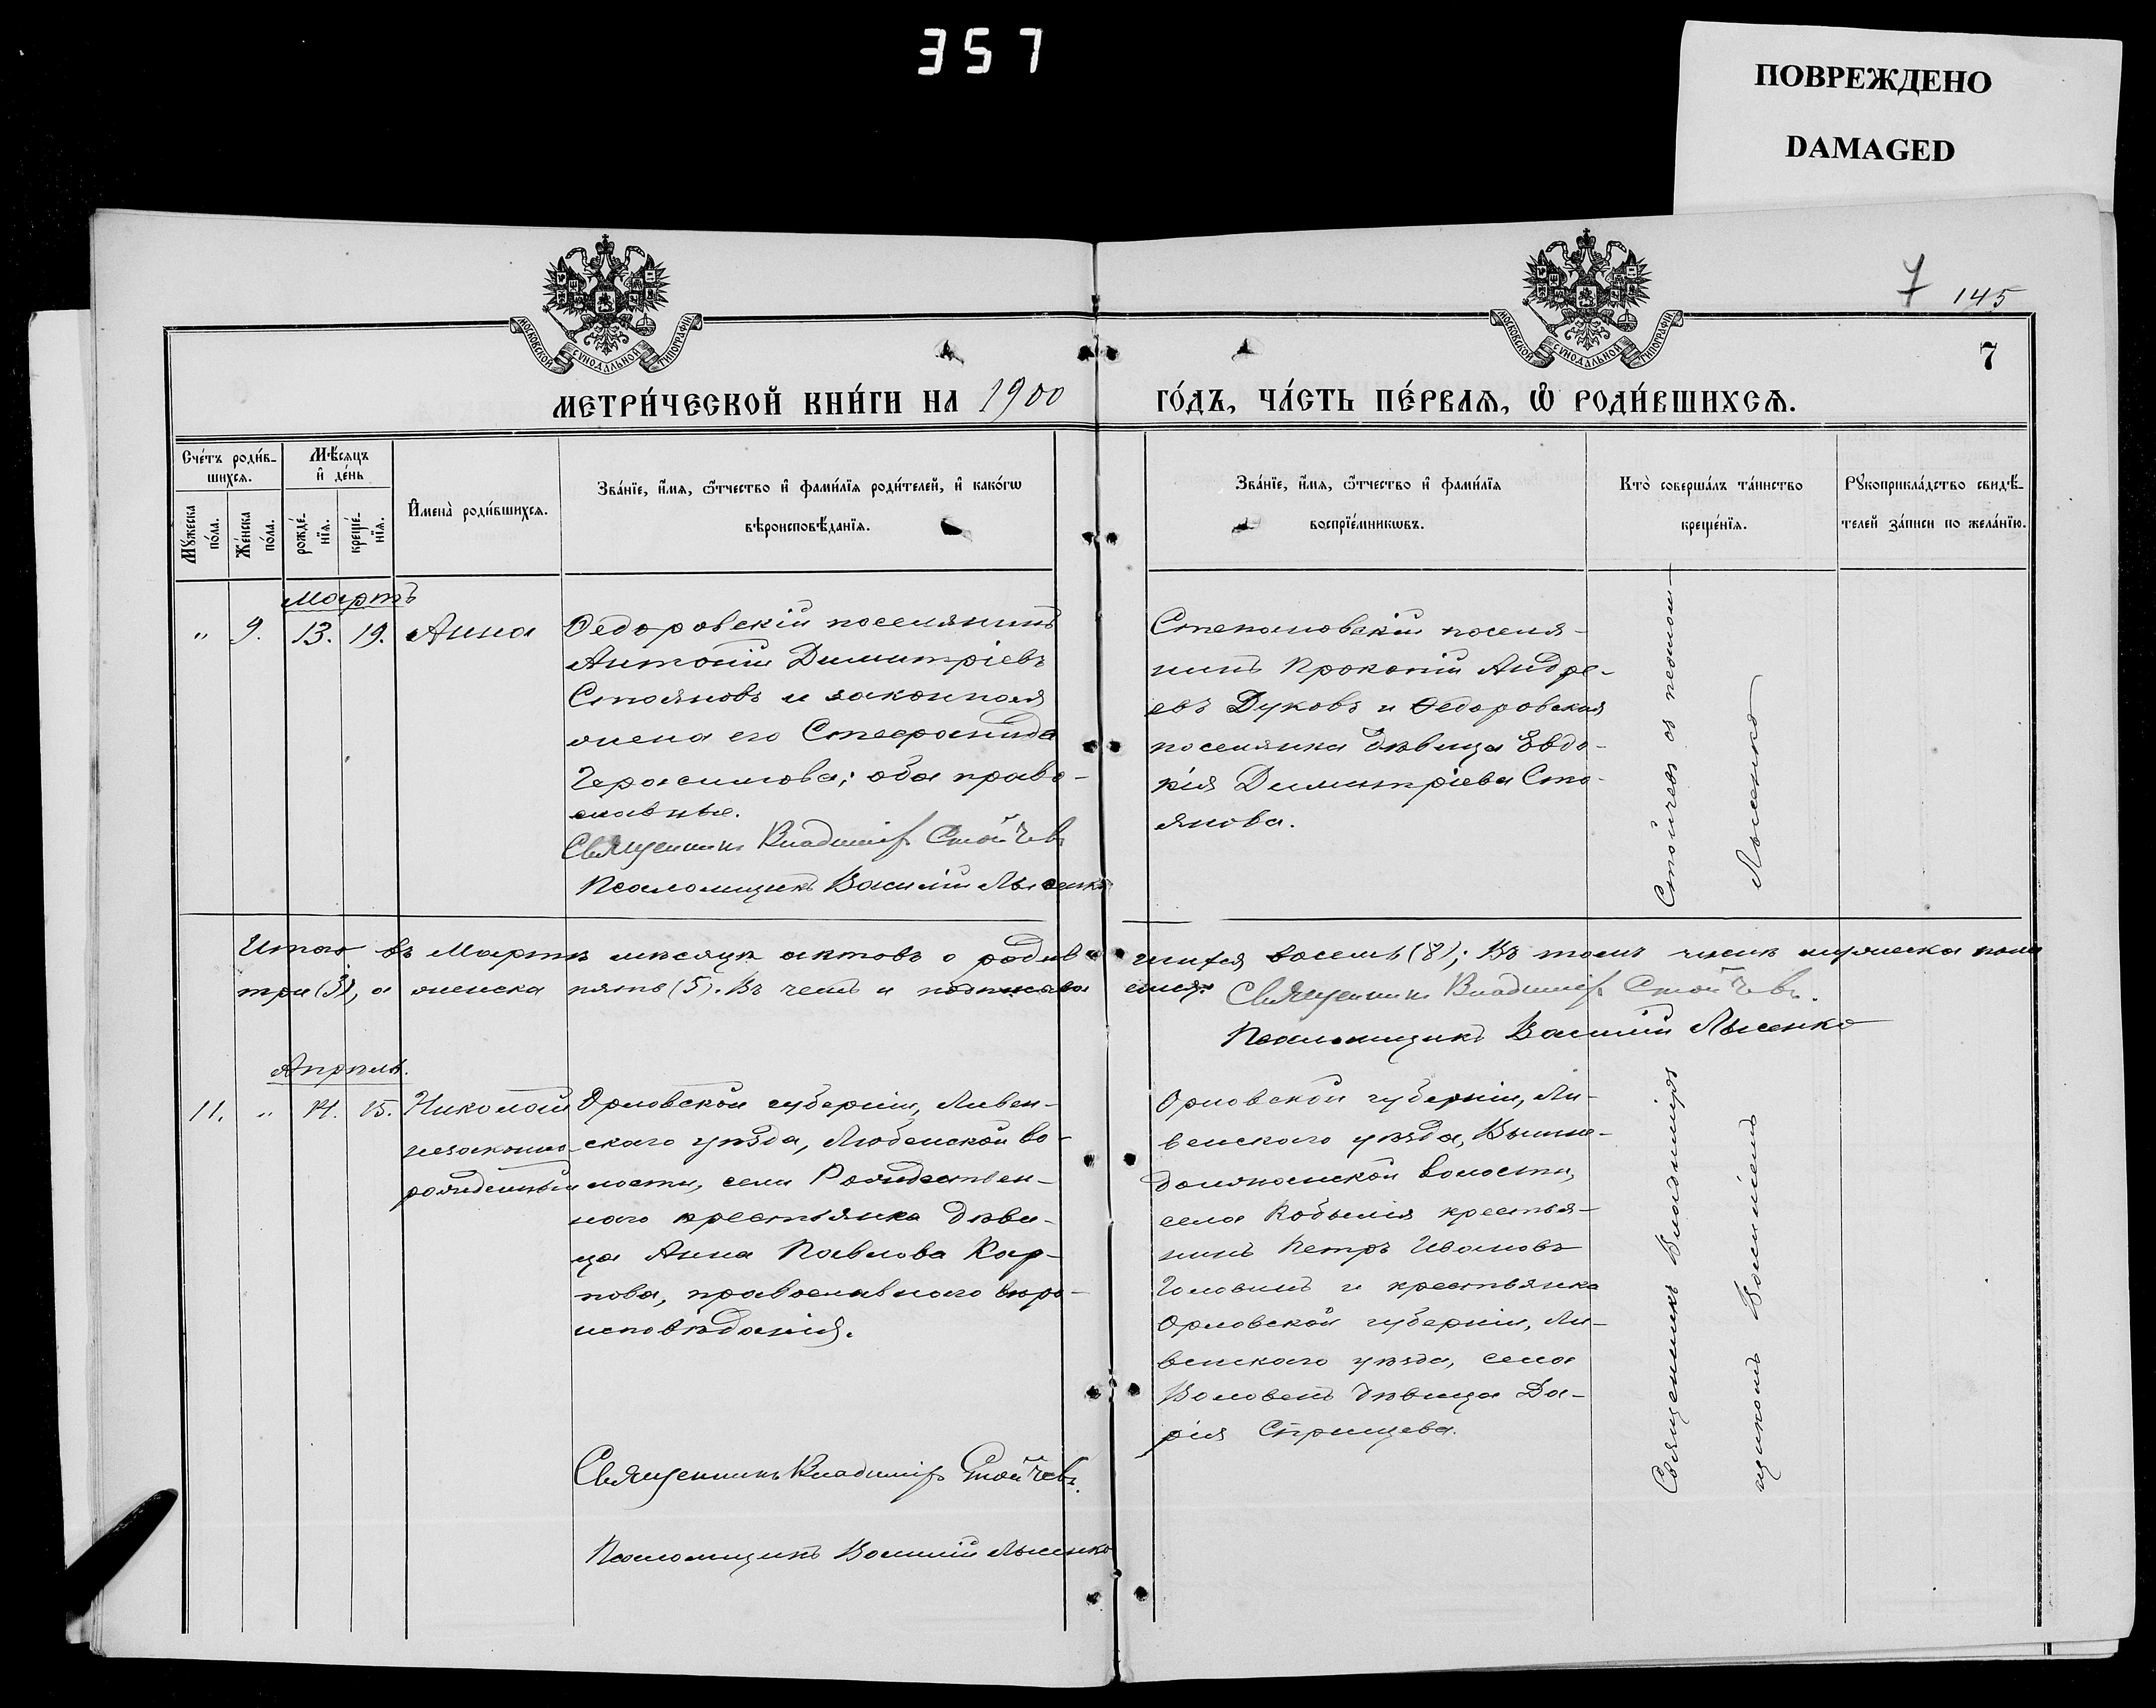 357
ПОВРЕЖДЕНО
DAMAGED
7 145
7
МОСКОВСКОЙ СѴНОДАЛЬНОЙ ТИПОГРАФІИ
МОСКОВСКОЙ СѴНОДАЛЬНОЙ ТИПОГРАФІИ
МЕТРИ́ЧЕСКОЙ КНИ́ГИ НА 1900 ГО́ДЪ, ЧА́СТЬ ПЕ́РВАѦ, Ѡ҆ РОДИ́ВШИХСѦ.
Сче́тъ роди́в-
шихсѧ.
Мꙋ́жеска
по́ла.
Же́нска
по́ла.
Мѣ́сѧцъ
и҆ де́нь
рожде́-
нїѧ.
креще́-
нїѧ.
И҆мена̀ роди́вшихсѧ.
Зва́нїе, и҆́мѧ, ѻ҆́тчество и҆ фами́лїѧ роди́телей, и҆ како́гѡ
вѣроисповѣ́данїѧ.
Зва́нїе, и҆́мѧ, ѻ҆́тчество и҆ фами́лїѧ
воспрїе́мникѡвъ.
Кто̀ соверша́лъ та́инство
креще́нїѧ.
Рꙋкоприкла́дство свидѣ́-
телей за́писи по жела́нїю.
Мартъ
" 9. 13. 19. Анна
Ѳедоровскій поселянинъ
Антоній Димитріевъ
Стояновъ и законная
жена его Стефанида
Герасимова; оба право-
славные.
Священникъ Владиміръ Стойчевъ
Псаломщикъ Василій Лысенко
Степановскій поселя-
нинъ Прокопій Андре-
евъ Дуковъ и Ѳедоровская
поселянка дѣвица Евдо-
кія Димитріева Сто-
янова.
Стойчевъ съ псалом-
Лысенко
Итого въ Мартѣ мѣсяцѣ актовъ о родив-шихся восемь (8); Въ томъ числѣ мужеска пола
три (3), а женска пять (5). Въ чемъ и подписались.
Священникъ Владиміръ Стойчевъ.
Псаломщикъ Василій Лысенко
Апрѣль.
11. " 14. 15. Николай
незаконно-
рожденный
Орловской губерніи, Ливен-
скаго уѣзда, Любенской во-
лости, села Рождествен-
наго крестьянка дѣви-
ца Анна Павлова Кар-
пова, православнаго вѣро-
исповѣданія.
Священникъ Владиміръ Стойчевъ.
Псаломщикъ Василій Лысенко
Орловской губерніи, Ли-
венскаго уѣзда, Вышне-
должанской волости,
села Кобылія крестья-
нинъ Петръ Ивановъ
Головинъ и крестьянка
Орловской губерніи, Ли-
венскаго уѣзда, села
Воловень дѣвица Да-
рія Стрищева.
Священникъ Владиміръ
щикомъ Василіемъ